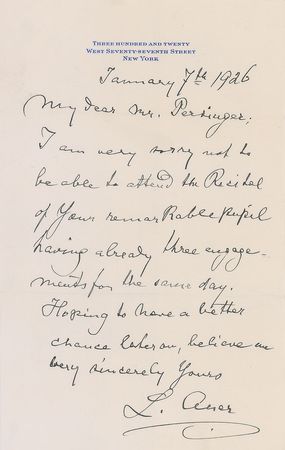 THREE HUNDRED AND TWENTY
WEST SEVENTY-SEVENTH STREET
NEW YORK
January 7th 1926
My dear Mr. Persinger;
I am very sorry not to
be able to attend the Recital
of Your remarkable pupil
having already three engage-
ments for the same day.
Hoping to have a better
chance later on, believe me
very sincerely Yours
L. Auer